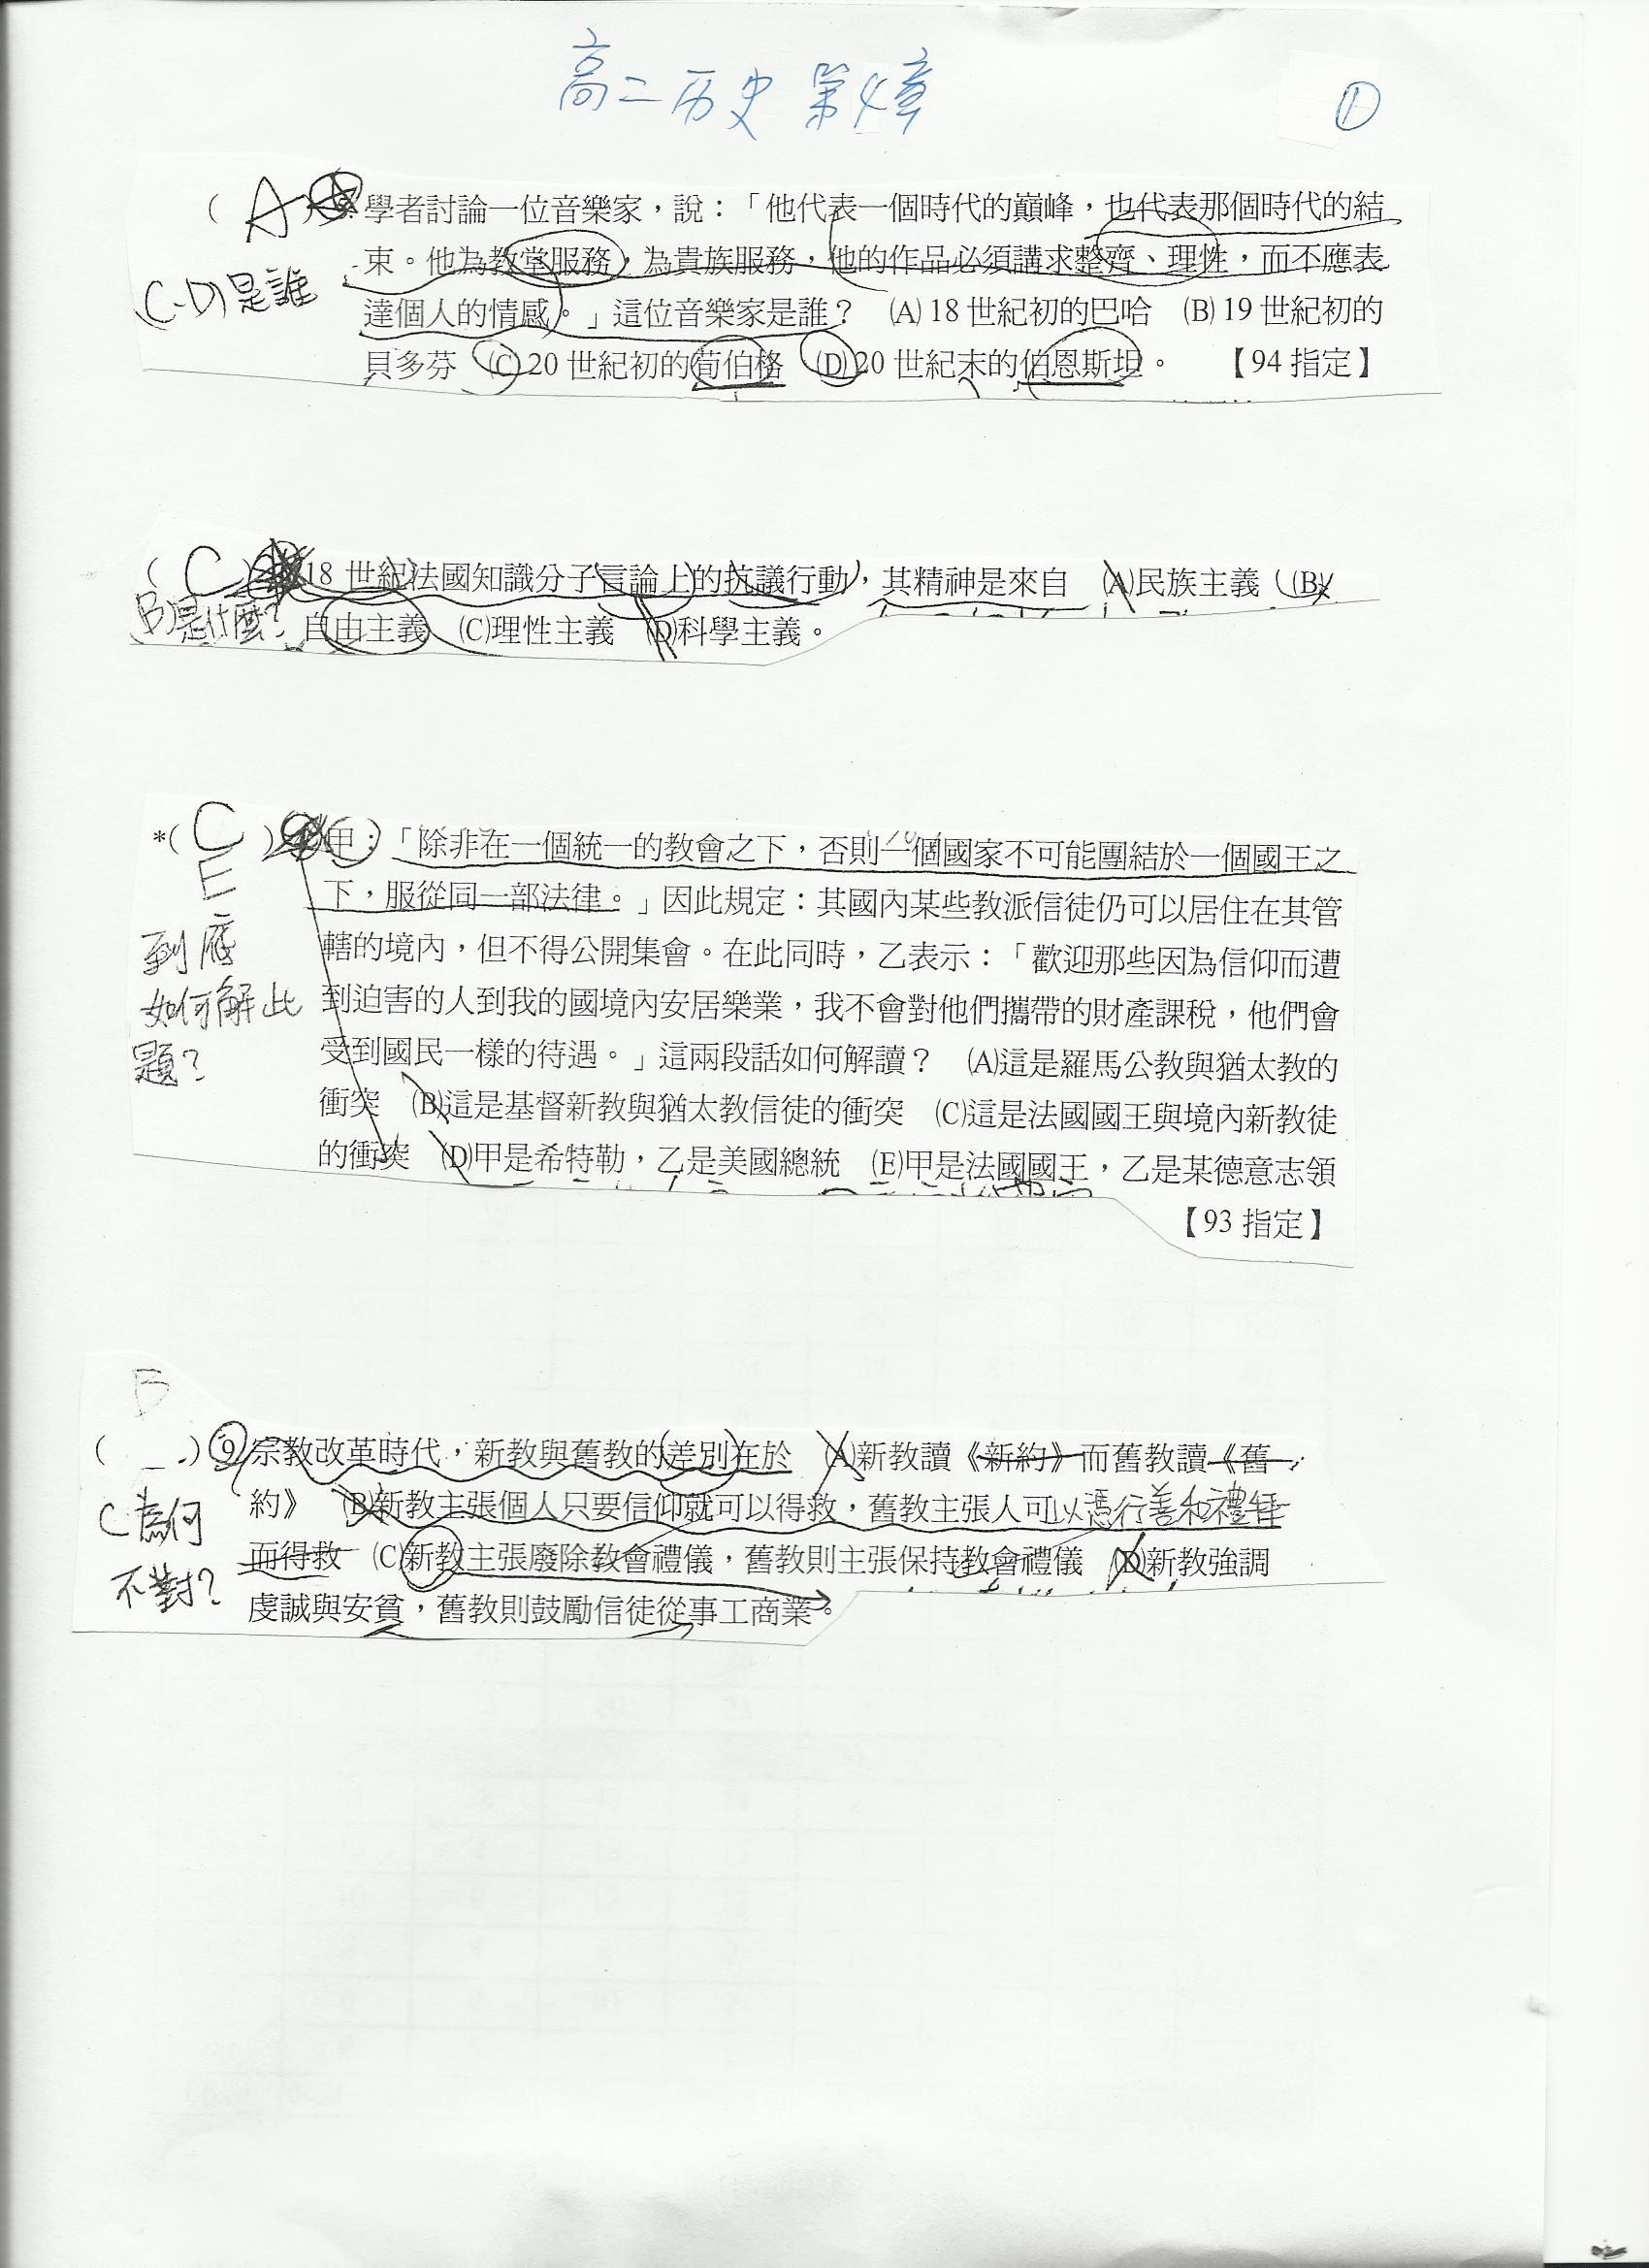 高二历史 第4章
①
( A ) 學者討論一位音樂家，說：「他代表一個時代的巔峰，也代表那個時代的結
束。他為教堂服務，為貴族服務，他的作品必須講求整齊、理性，而不應表
(C-D)是誰
達個人的情感。」這位音樂家是誰？ (A) 18 世紀初的巴哈 (B) 19 世紀初的
貝多芬 (C) 20 世紀初的荀伯格 (D) 20 世紀末的伯恩斯坦。 【94 指定】
( C ) 18 世紀法國知識分子言論上的抗議行動，其精神是來自 (A)民族主義 (B)
B)是什麼?
自由主義 (C)理性主義 (D)科學主義。
*( C E ) 甲：「除非在一個統一的教會之下，否則一個國家不可能團結於一個國王之
下，服從同一部法律。」因此規定：其國內某些教派信徒仍可以居住在其管
轄的境內，但不得公開集會。在此同時，乙表示：「歡迎那些因為信仰而遭
到迫害的人到我的國境內安居樂業，我不會對他們攜帶的財產課稅，他們會
受到國民一樣的待遇。」這兩段話如何解讀？ (A)這是羅馬公教與猶太教的
衝突 (B)這是基督新教與猶太教信徒的衝突 (C)這是法國國王與境內新教徒
的衝突 (D)甲是希特勒，乙是美國總統 (E)甲是法國國王，乙是某德意志領
【93 指定】
到底
如何解此
題?
B
( ) 9 宗教改革時代，新教與舊教的差別在於 (A)新教讀《新約》而舊教讀《舊
約》 (B)新教主張個人只要信仰就可以得救，舊教主張人可以憑行善和禮拜
而得救 (C)新教主張廢除教會禮儀，舊教則主張保持教會禮儀 (D)新教強調
虔誠與安貧，舊教則鼓勵信徒從事工商業。
C為何
不對?